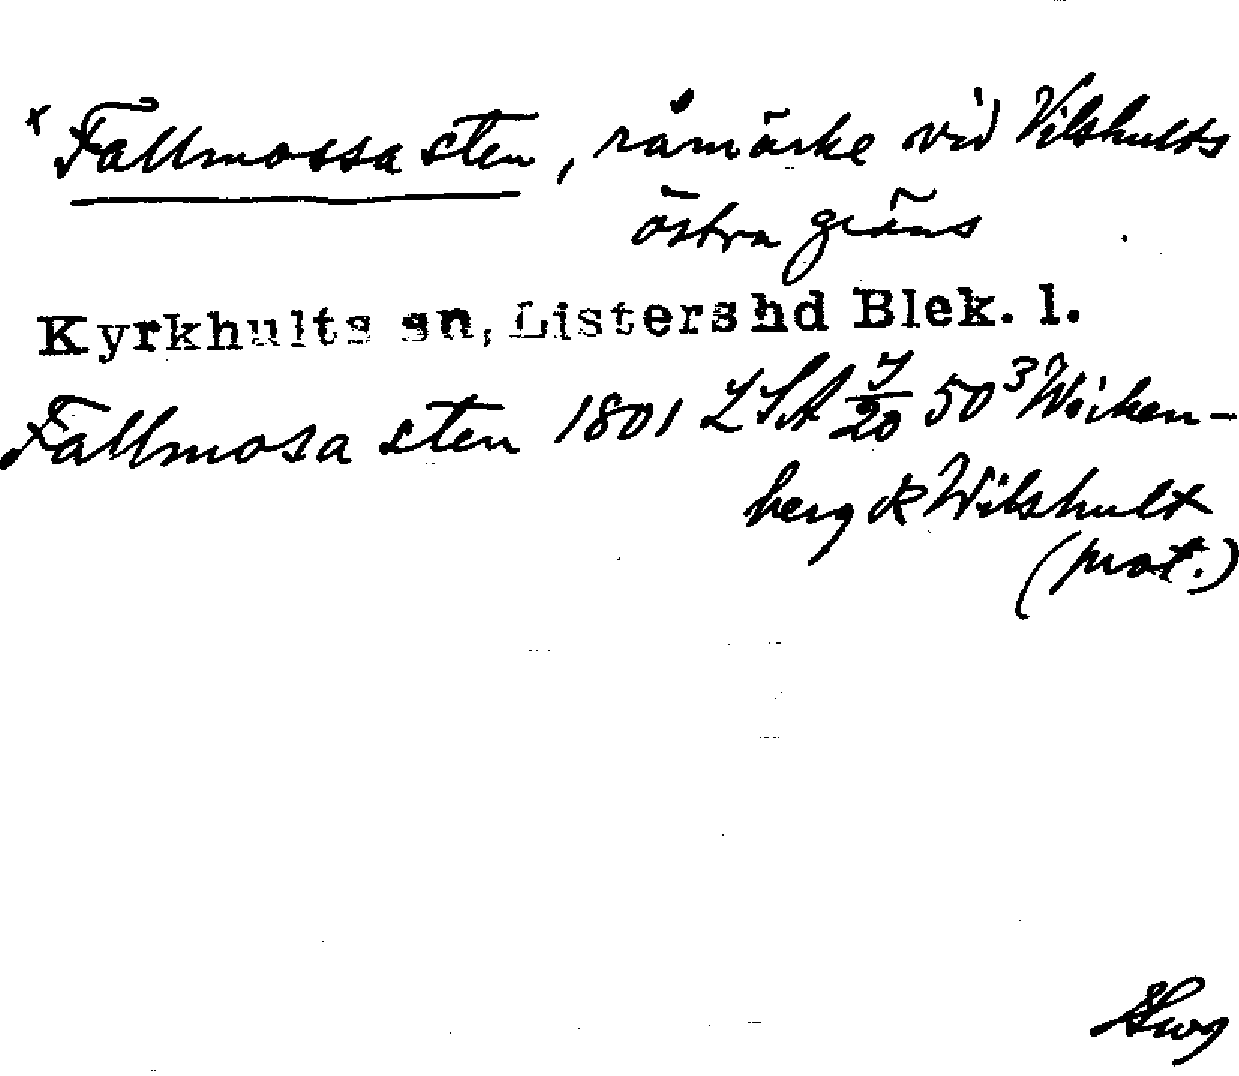 x Fallmossa sten, råmärke vid Vilshults
östra gräns
Kyrkhults sn, Listers hd Blek. l.
Fallmosa sten 1801 LSA 7/20 50³ Wicken-
berg & Wilshult
(prot.)